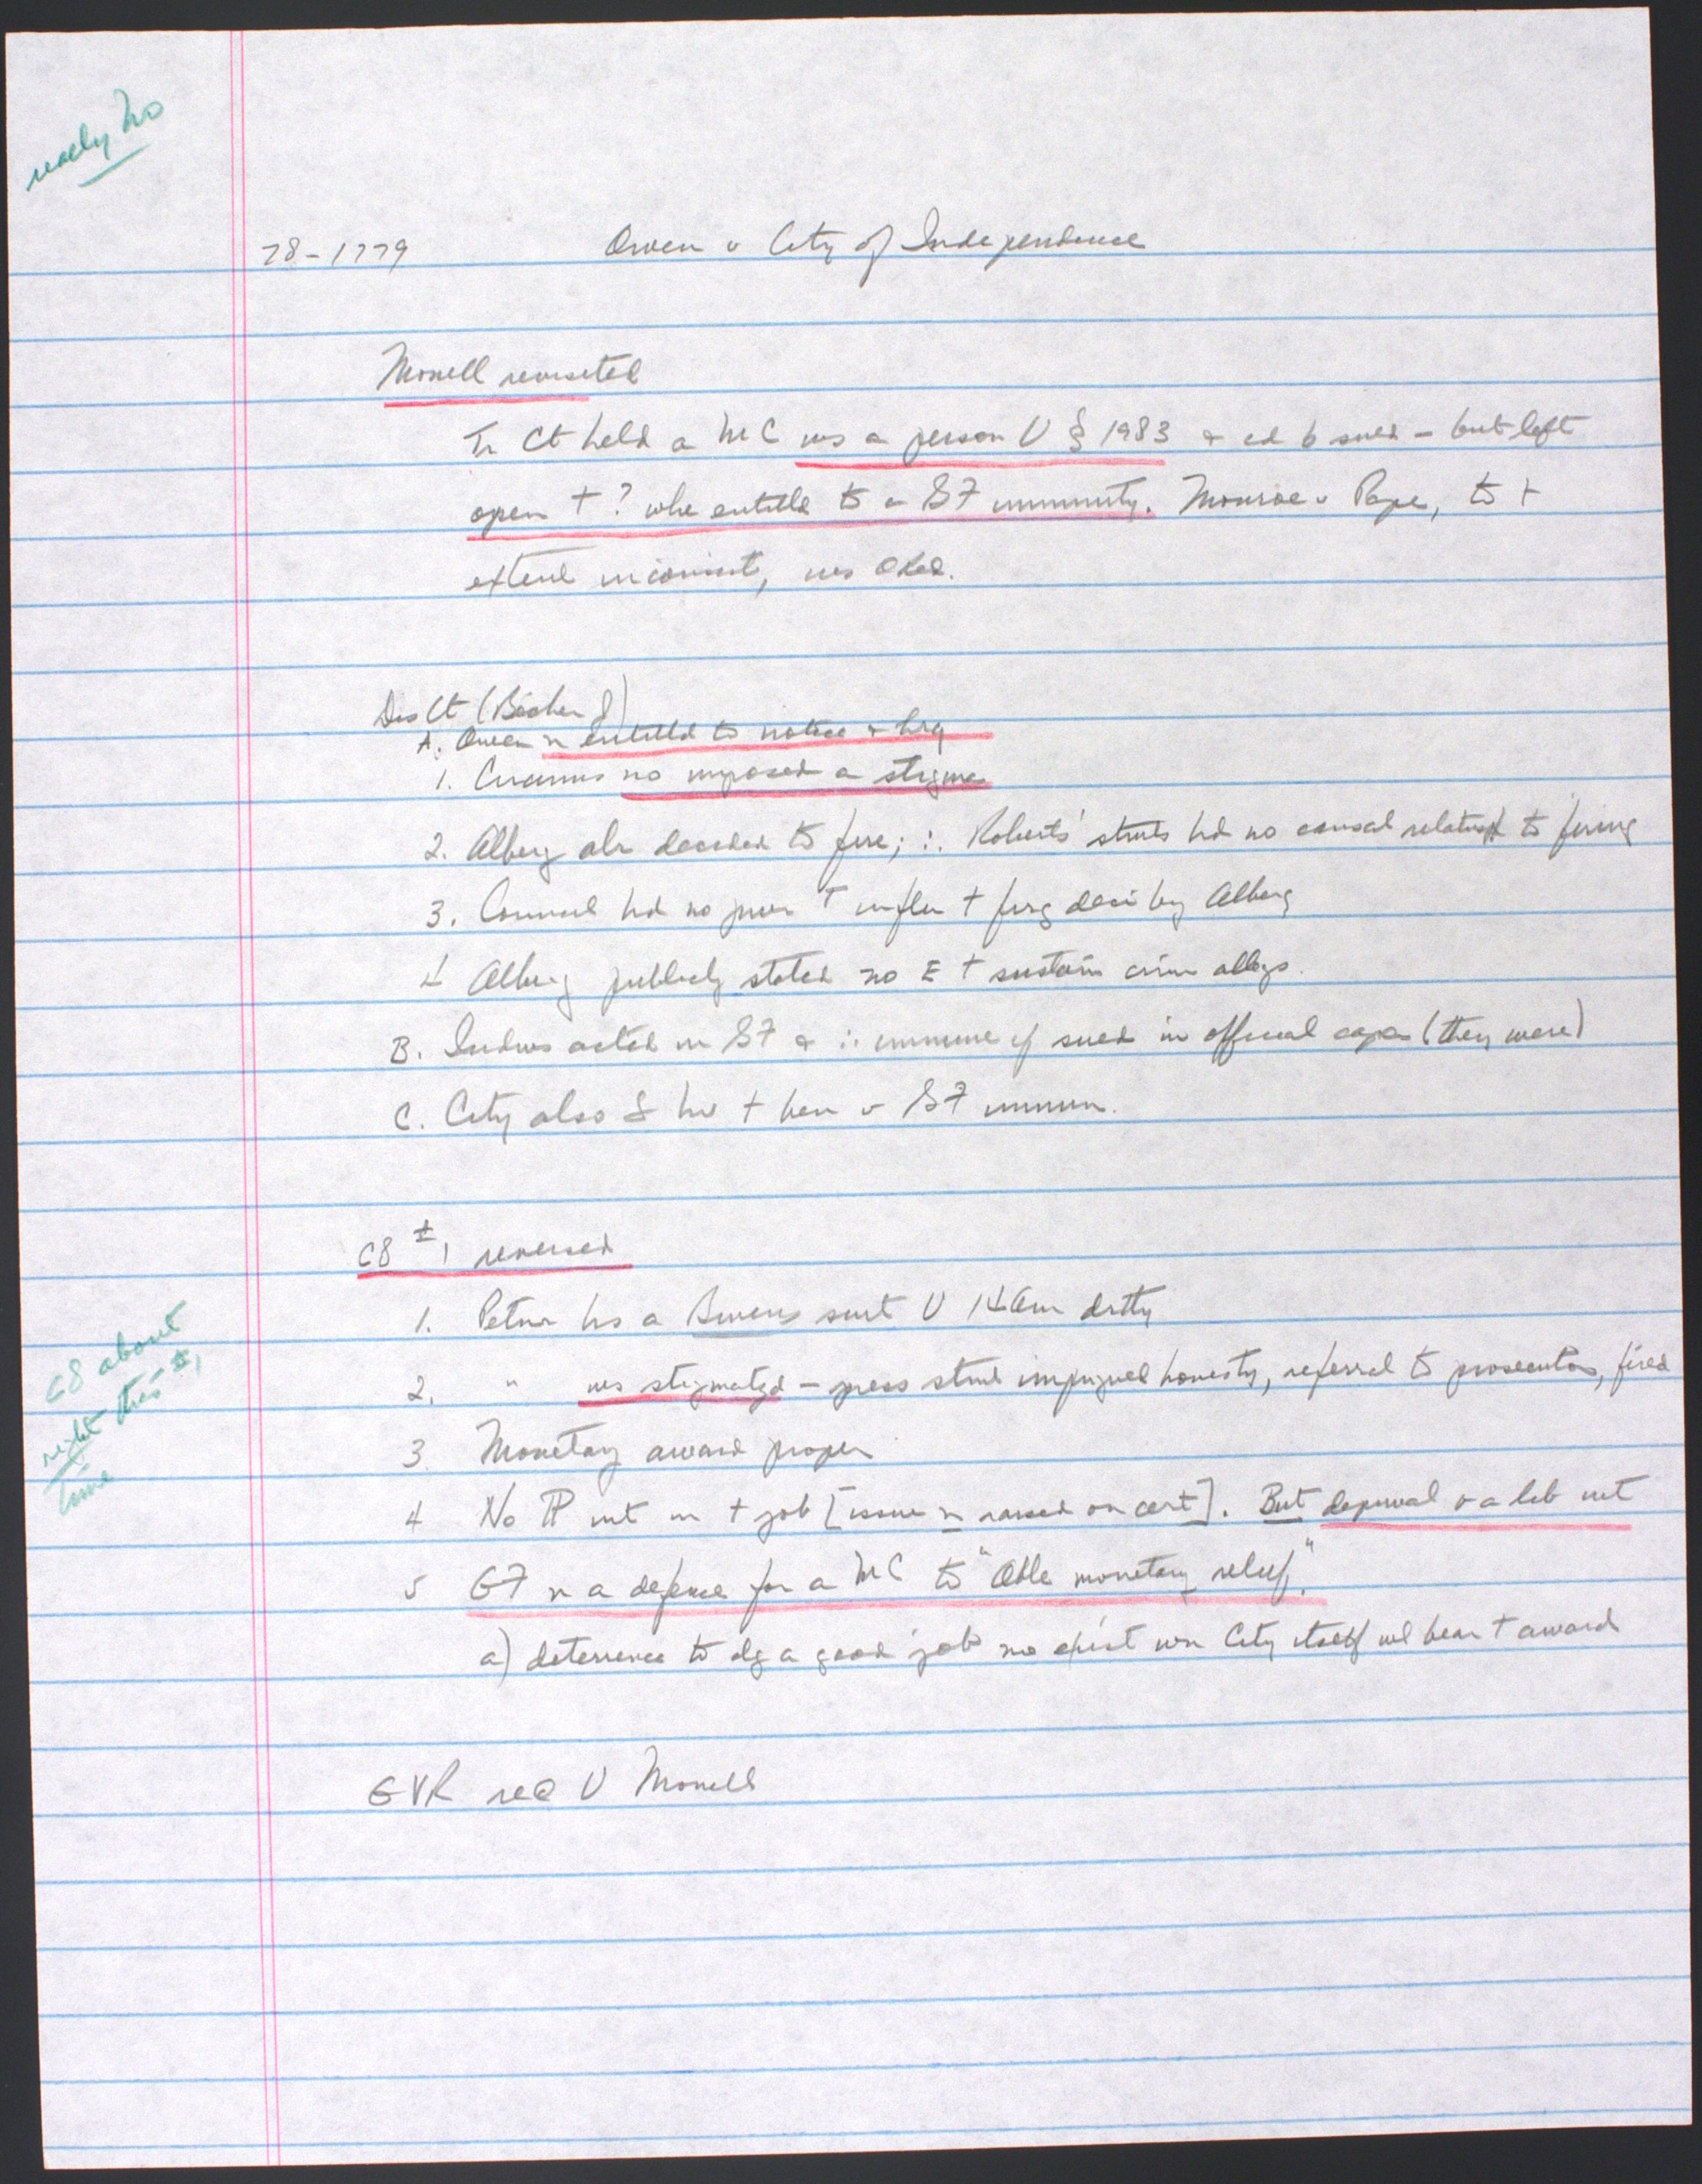 78-1779 Owen v City of Independence
Monell revisited
Ct held a MC ws a person U § 1983 & cd b sued – but left
open t ? whe entitled to a GF immunity. Monroe v Pape, to t
extent inconsist, ws ORed.
Dis Ct (Becker J)
A. Owen n entitled to notice & hrg
1. no imposed a stigma
2. Alberg alr decided to fire; ∴ Roberts' stmts hd no causal relatnsh to firing
3. Council hd no t influ t decis by Alberg
4 Alberg publicly stated no E t sustain crim allegs.
B. Indivs acted in GF & ∴ immune if sued in official capac (they were)
C. City also t ben v GF immun.
C8 #1 reversed
1. Petnr hs a Bivens suit U 14 Am drtly
2. " ws stigmatzd – press stmt impugned honesty, referral to prosecutor, fired
3. Monetary award proper
4 No P int in t job [issue n raised on cert]. But deprival v a lib int
5 GF n a defense for a MC to "able monetary relief".
a) deterrence to dg a good job no exist wn City itself wl bear t award
GVR U Monell
C8 about
right this #1
time